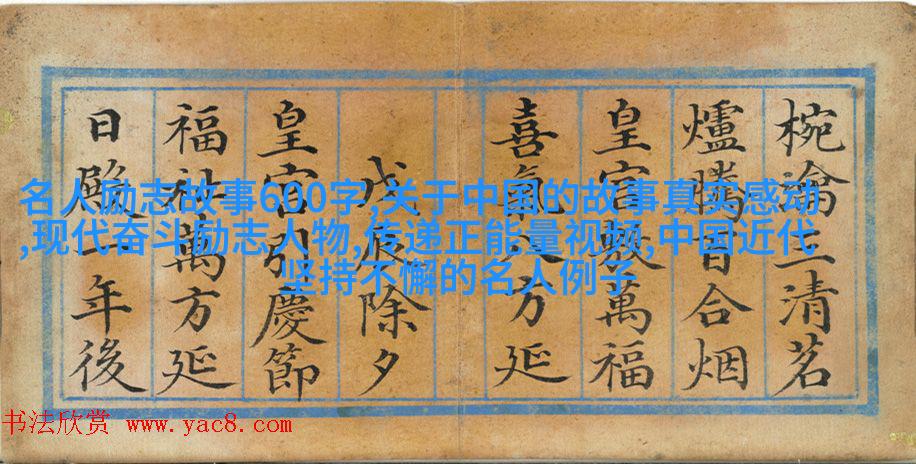 椀瀹三清茗
爐騰百合烟
皇宫敷萬福
喜氣八方延
戊辰除夕
皇宫引慶節
福祉萬方延
日殿一年後
名人励志故事600字,关于中国的故事真实感动
,现代奋斗励志人物,传递正能量视频,中国近代
坚持不懈的名人例子
书法欣赏 www.yac8.com